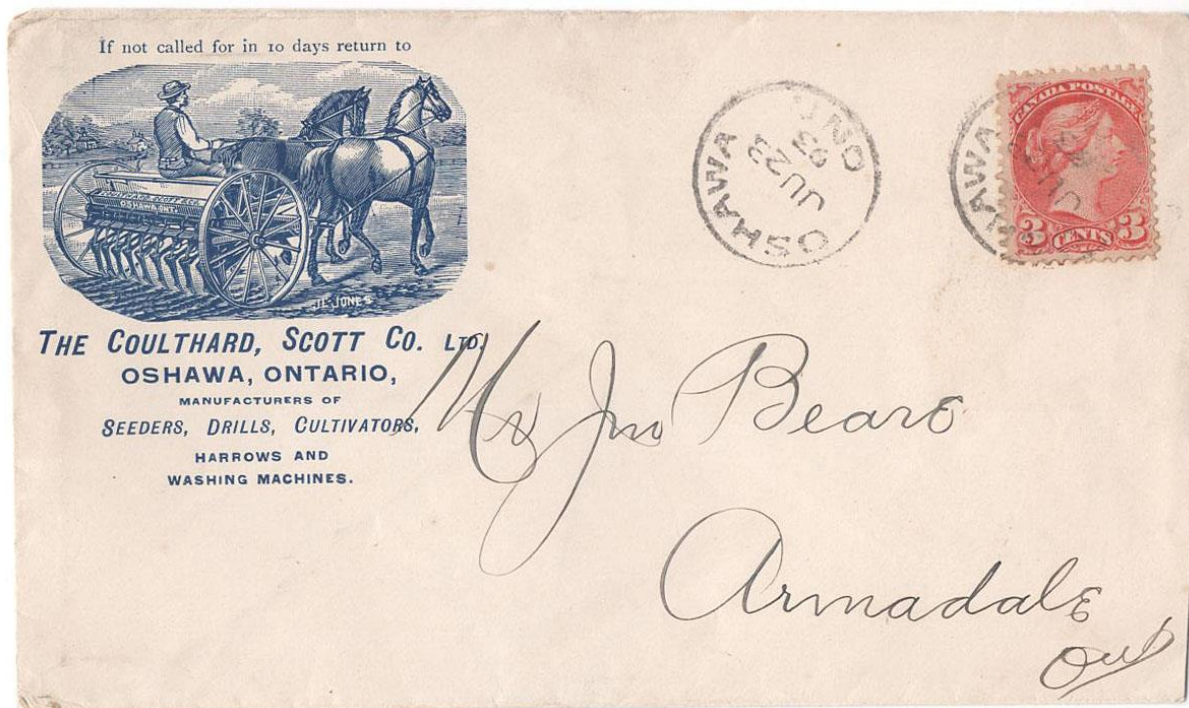 If not called for in 10 days return to
COULTHARD, SCOTT & CO.
OSHAWA, ONT.
J.L. JONES
THE COULTHARD, SCOTT CO. LTD.
OSHAWA, ONTARIO,
MANUFACTURERS OF
SEEDERS, DRILLS, CULTIVATORS,
HARROWS AND
WASHING MACHINES.
OSHAWA
JU 23
93
ONT
CANADA POSTAGE
3 CENTS 3
Mr Jno Beare
Armadale
Ont